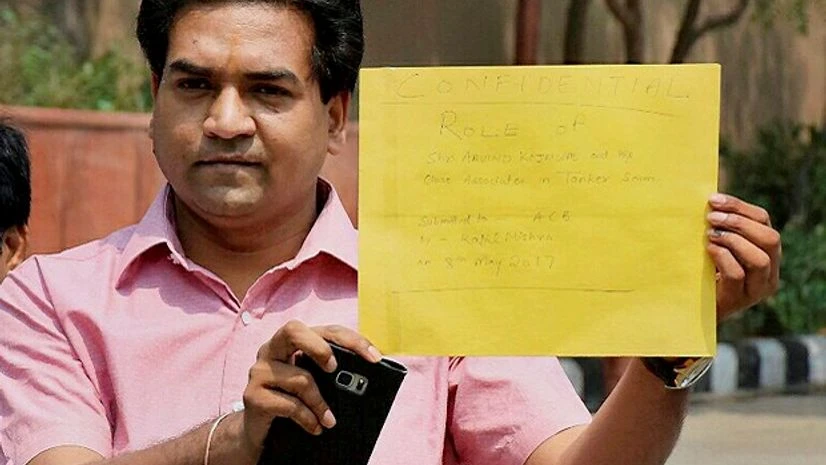 CONFIDENTIAL
ROLE OF
Shri ARVIND KEJRIWAL and his
Close Associates in Tanker Scam
Submitted to - ACB
by - Kapil Mishra
on 8th May 2017